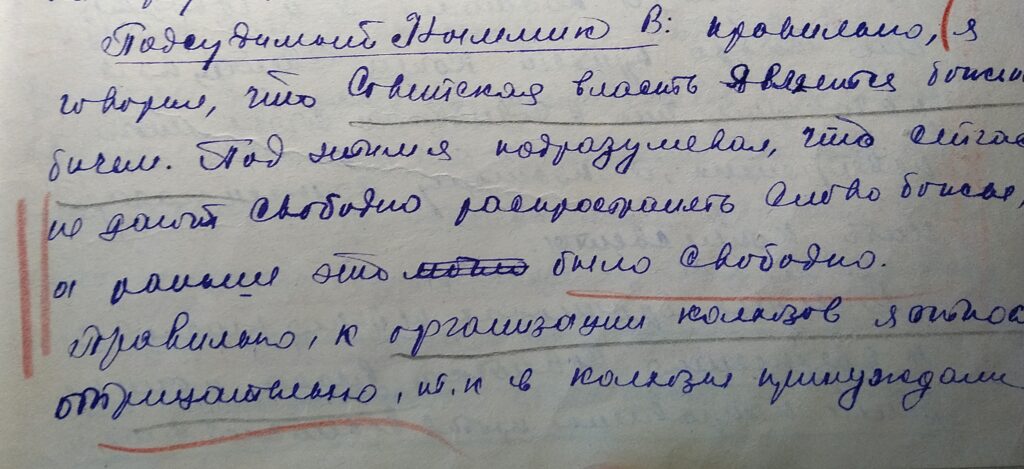 Подсудимый Кыммик В: правильно, я
говорил, что Советская власть является божьим
бичем. Под этим я подразумевал, что сейчас
не дают свободно распространять слово божье,
а раньше это было свободно.
Правильно, к организации колхозов я относ
отрицательно, т.к в колхозы принуждали